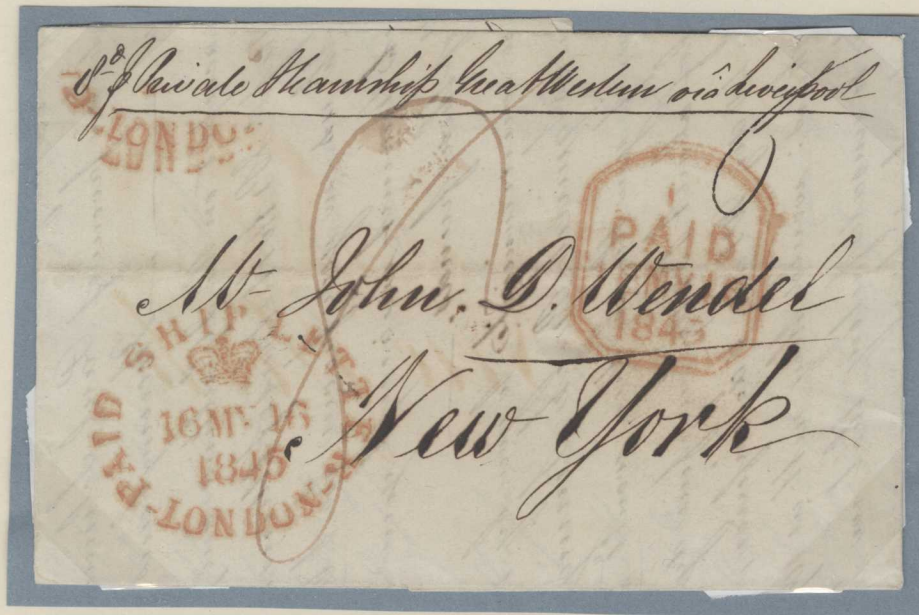 8d p Private Steamship Great Western viâ Liverpool
LONDON
PAID
1845
Mr John. D. Wendel
New York
PAID SHIP LETTER
16 MY 16
1845
LONDON